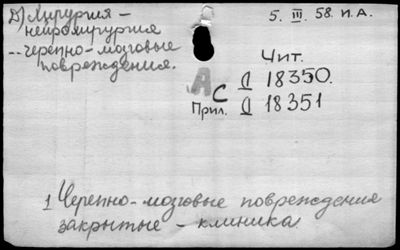 Д) Хирургия –
нейрохирургия
-- черепно-мозговые
повреждения.
5. III. 58. И.А.
Чит.
Д 18350.
АС
Прил. Д 18351
1 Черепно-мозговые повреждения
закрытые – клиника